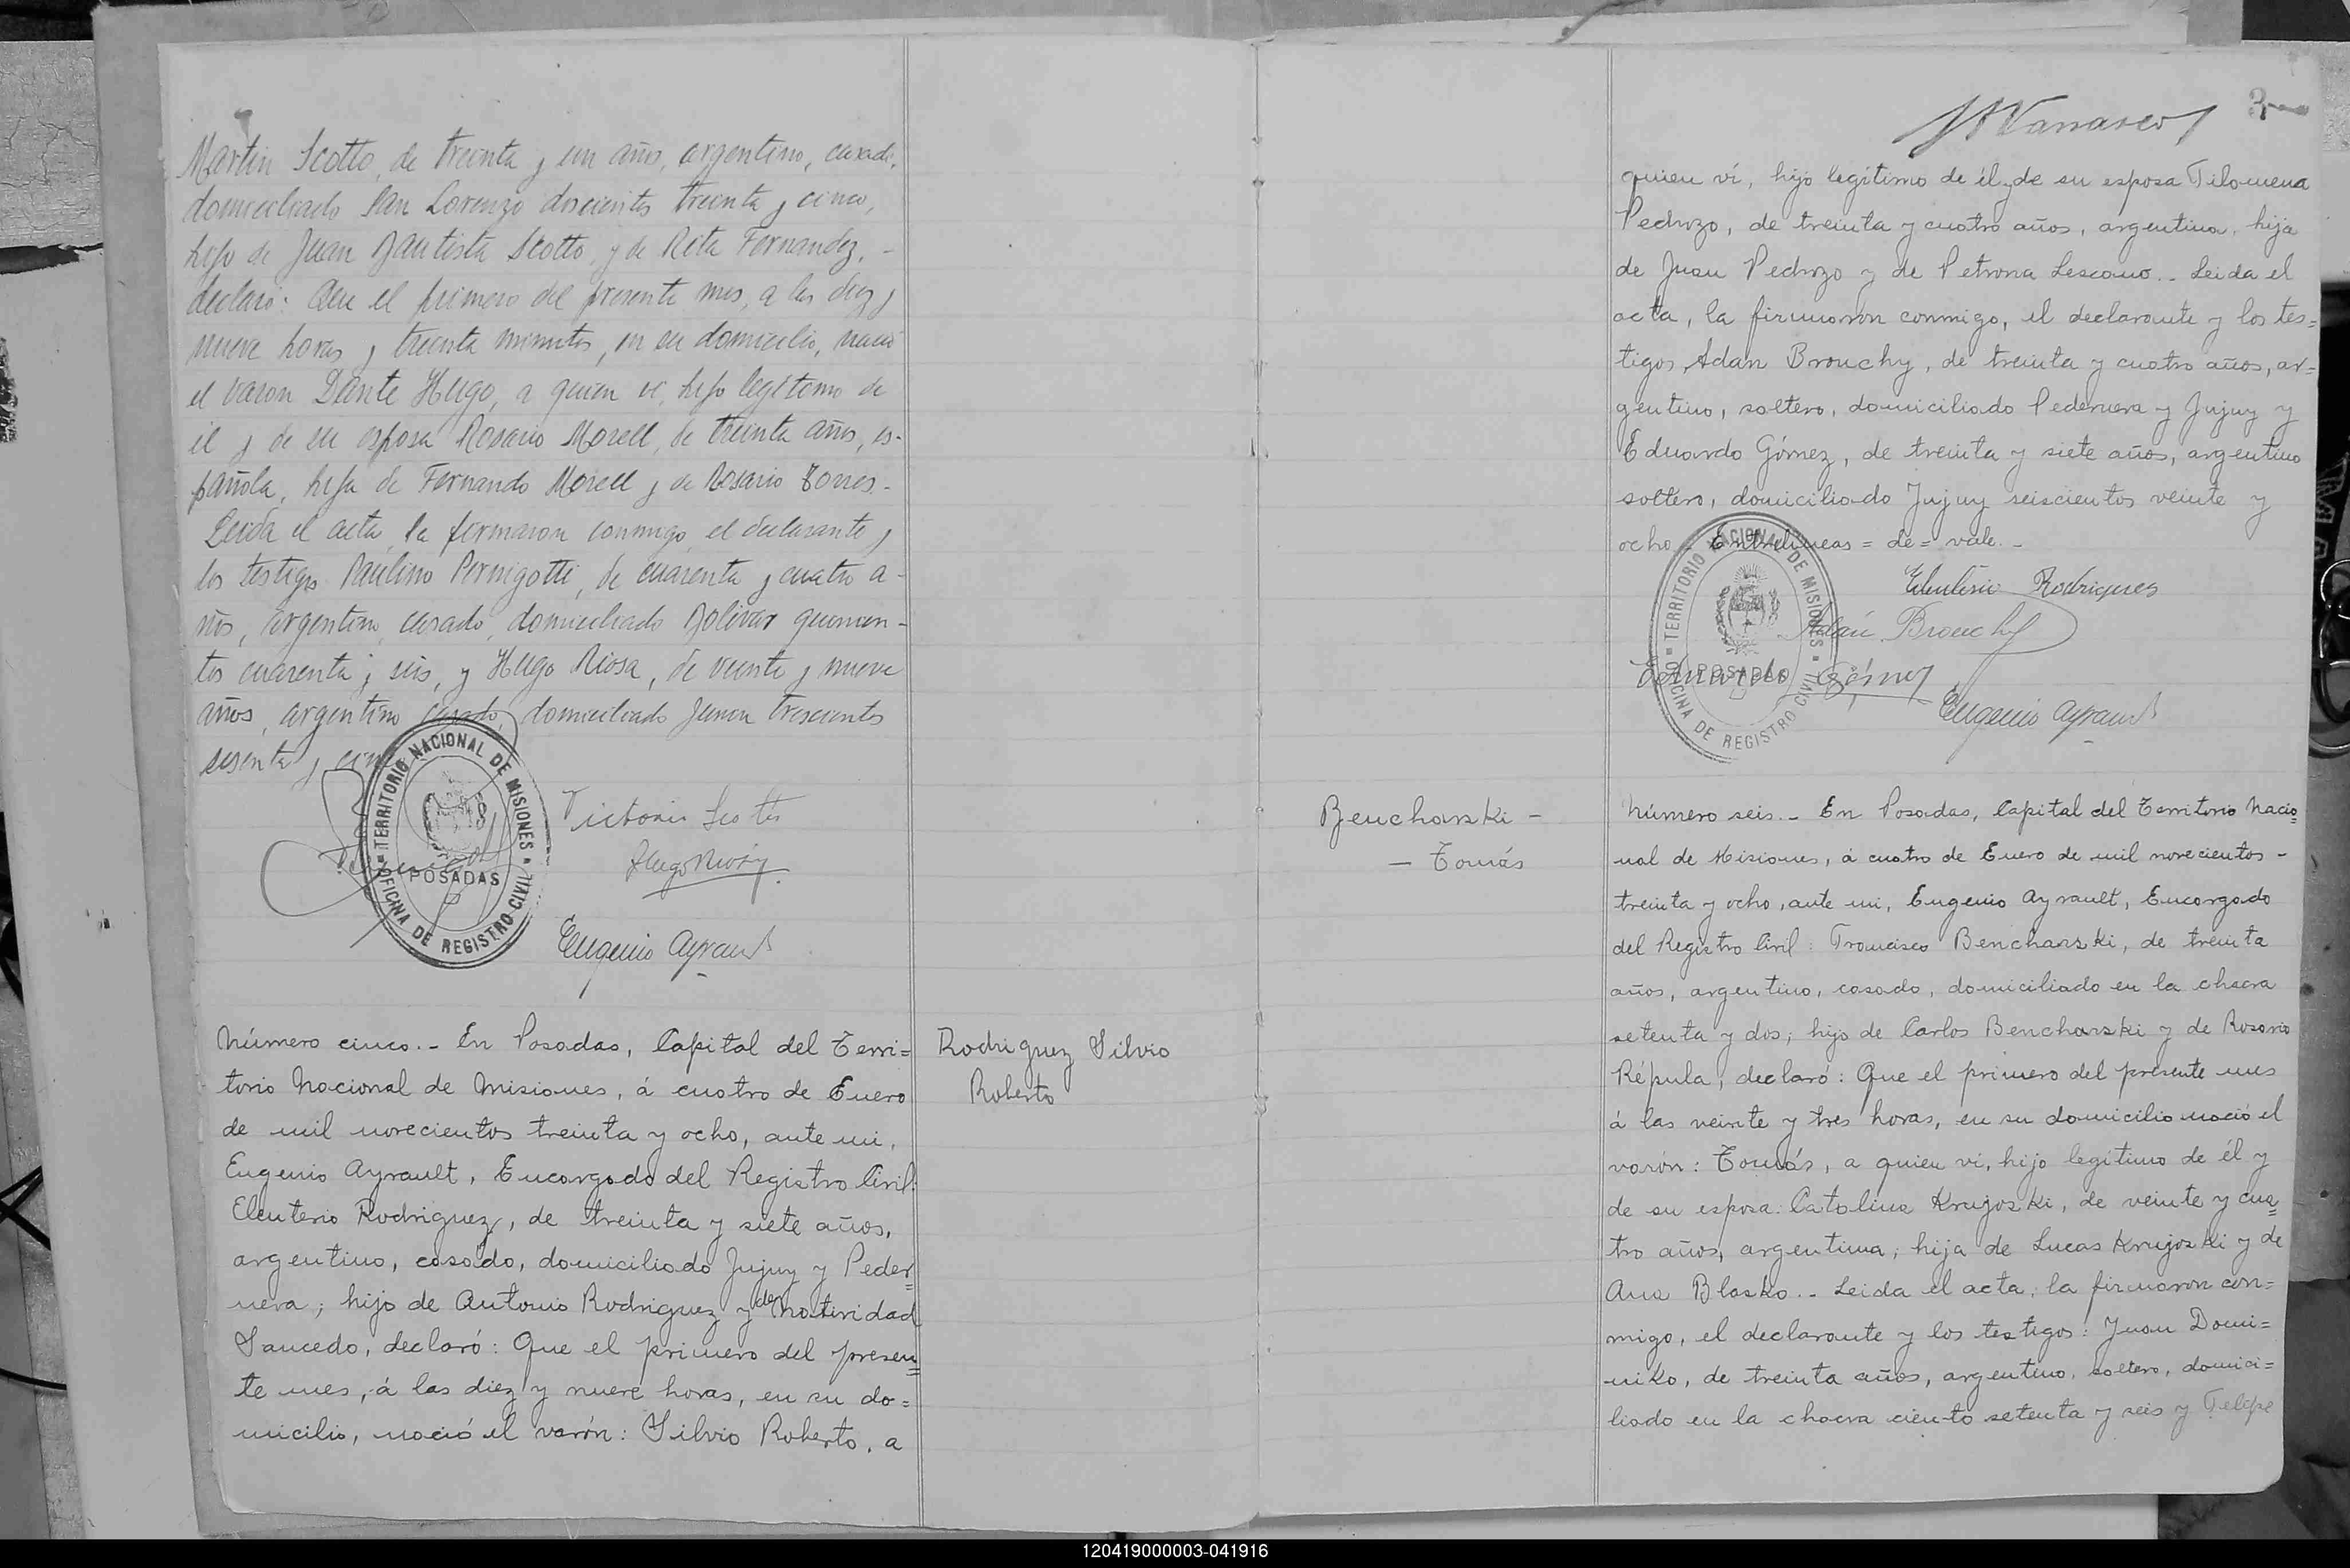 Martin Scotto, de treinta y un años, argentino, casado,
domiciliado San Lorenzo doscientos treinta y cinco,
hijo de Juan Bautista Scotto y de Rita Fernandez, -
declaró: Que el primero del presente mes, a las diez y
nueve horas y treinta minutos, en su domicilio, nació
el varon Dante Hugo, a quien vi, hijo legítimo de
él y de su esposa Rosario Morell, de treinta años, es-
pañola, hija de Fernando Morell y de Rosario Torres.-
Leida el acta, la firmaron conmigo, el declarante y
los testigos Paulino Pernigotti, de cuarenta y cuatro a-
ños, argentino, casado, domiciliado Bolivar quinien-
tos cuarenta y seis, y Hugo Riosa, de veinte y nueve
años, argentino, casado, domiciliado Junin trescientos
sesenta y
TERRITORIO NACIONAL DE MISIONES
POSADAS
OFICINA DE REGISTRO CIVIL
Eugenio Ayrault
Número cinco.- En Posadas, Capital del Terri=
torio Nacional de Misiones, á cuatro de Enero
de mil novecientos treinta y ocho, ante mi,
Eugenio Ayrault, Encargado del Registro Civil:
Eleuterio Rodriguez, de treinta y siete años,
argentino, casado, domiciliado Jujuy y Peder=
nera; hijo de Antonio Rodriguez y de Natividad
Saucedo, declaró: Que el primero del presen=
te mes, á las diez y nueve horas, en su do=
micilio, nació el varón: Silvio Roberto, a
Rodriguez Silvio
Roberto
3
quien ví, hijo legítimo de él y de su esposa Filomena
Pedrozo, de treinta y cuatro años, argentina, hija
de Juan Pedrozo y de Petrona Lescano.- Leida el
acta, la firmaron conmigo, el declarante y los tes=
tigos Adan Brouchy, de treinta y cuatro años, ar=
gentino, soltero, domiciliado Pedernera y Jujuy y
Eduardo Gómez, de treinta y siete años, argentino
soltero, domiciliado Jujuy seiscientos veinte y
ocho.- Entrelineas = de = vale.-
Eleuterio Rodriguez
Adán Brouchy
Eduardo Gómez
Eugenio Ayrault
TERRITORIO NACIONAL DE MISIONES
POSADAS
OFICINA DE REGISTRO CIVIL
Bencharski -
- Tomás
Número seis.- En Posadas, Capital del Territorio Nacio=
nal de Misiones, á cuatro de Enero de mil novecientos -
treinta y ocho, ante mi, Eugenio Ayrault, Encargado
del Registro Civil: Francisco Bencharski, de treinta
años, argentino, casado, domiciliado en la chacra
setenta y dos; hijo de Carlos Bencharski y de Rosario
Répula, declaró: Que el primero del presente mes
á las veinte y tres horas, en su domicilio nació el
varón: Tomás, a quien vi, hijo legítimo de él y
de su esposa: Catalina Krujoski, de veinte y cua=
tro años, argentina; hija de Lucas Krujoski y de
Ana Blasko.- Leida el acta, la firmaron con=
migo, el declarante y los testigos: Juan Domi=
niko, de treinta años, argentino, soltero, domici=
liado en la chacra ciento setenta y seis y Felipe
120419000003-041916